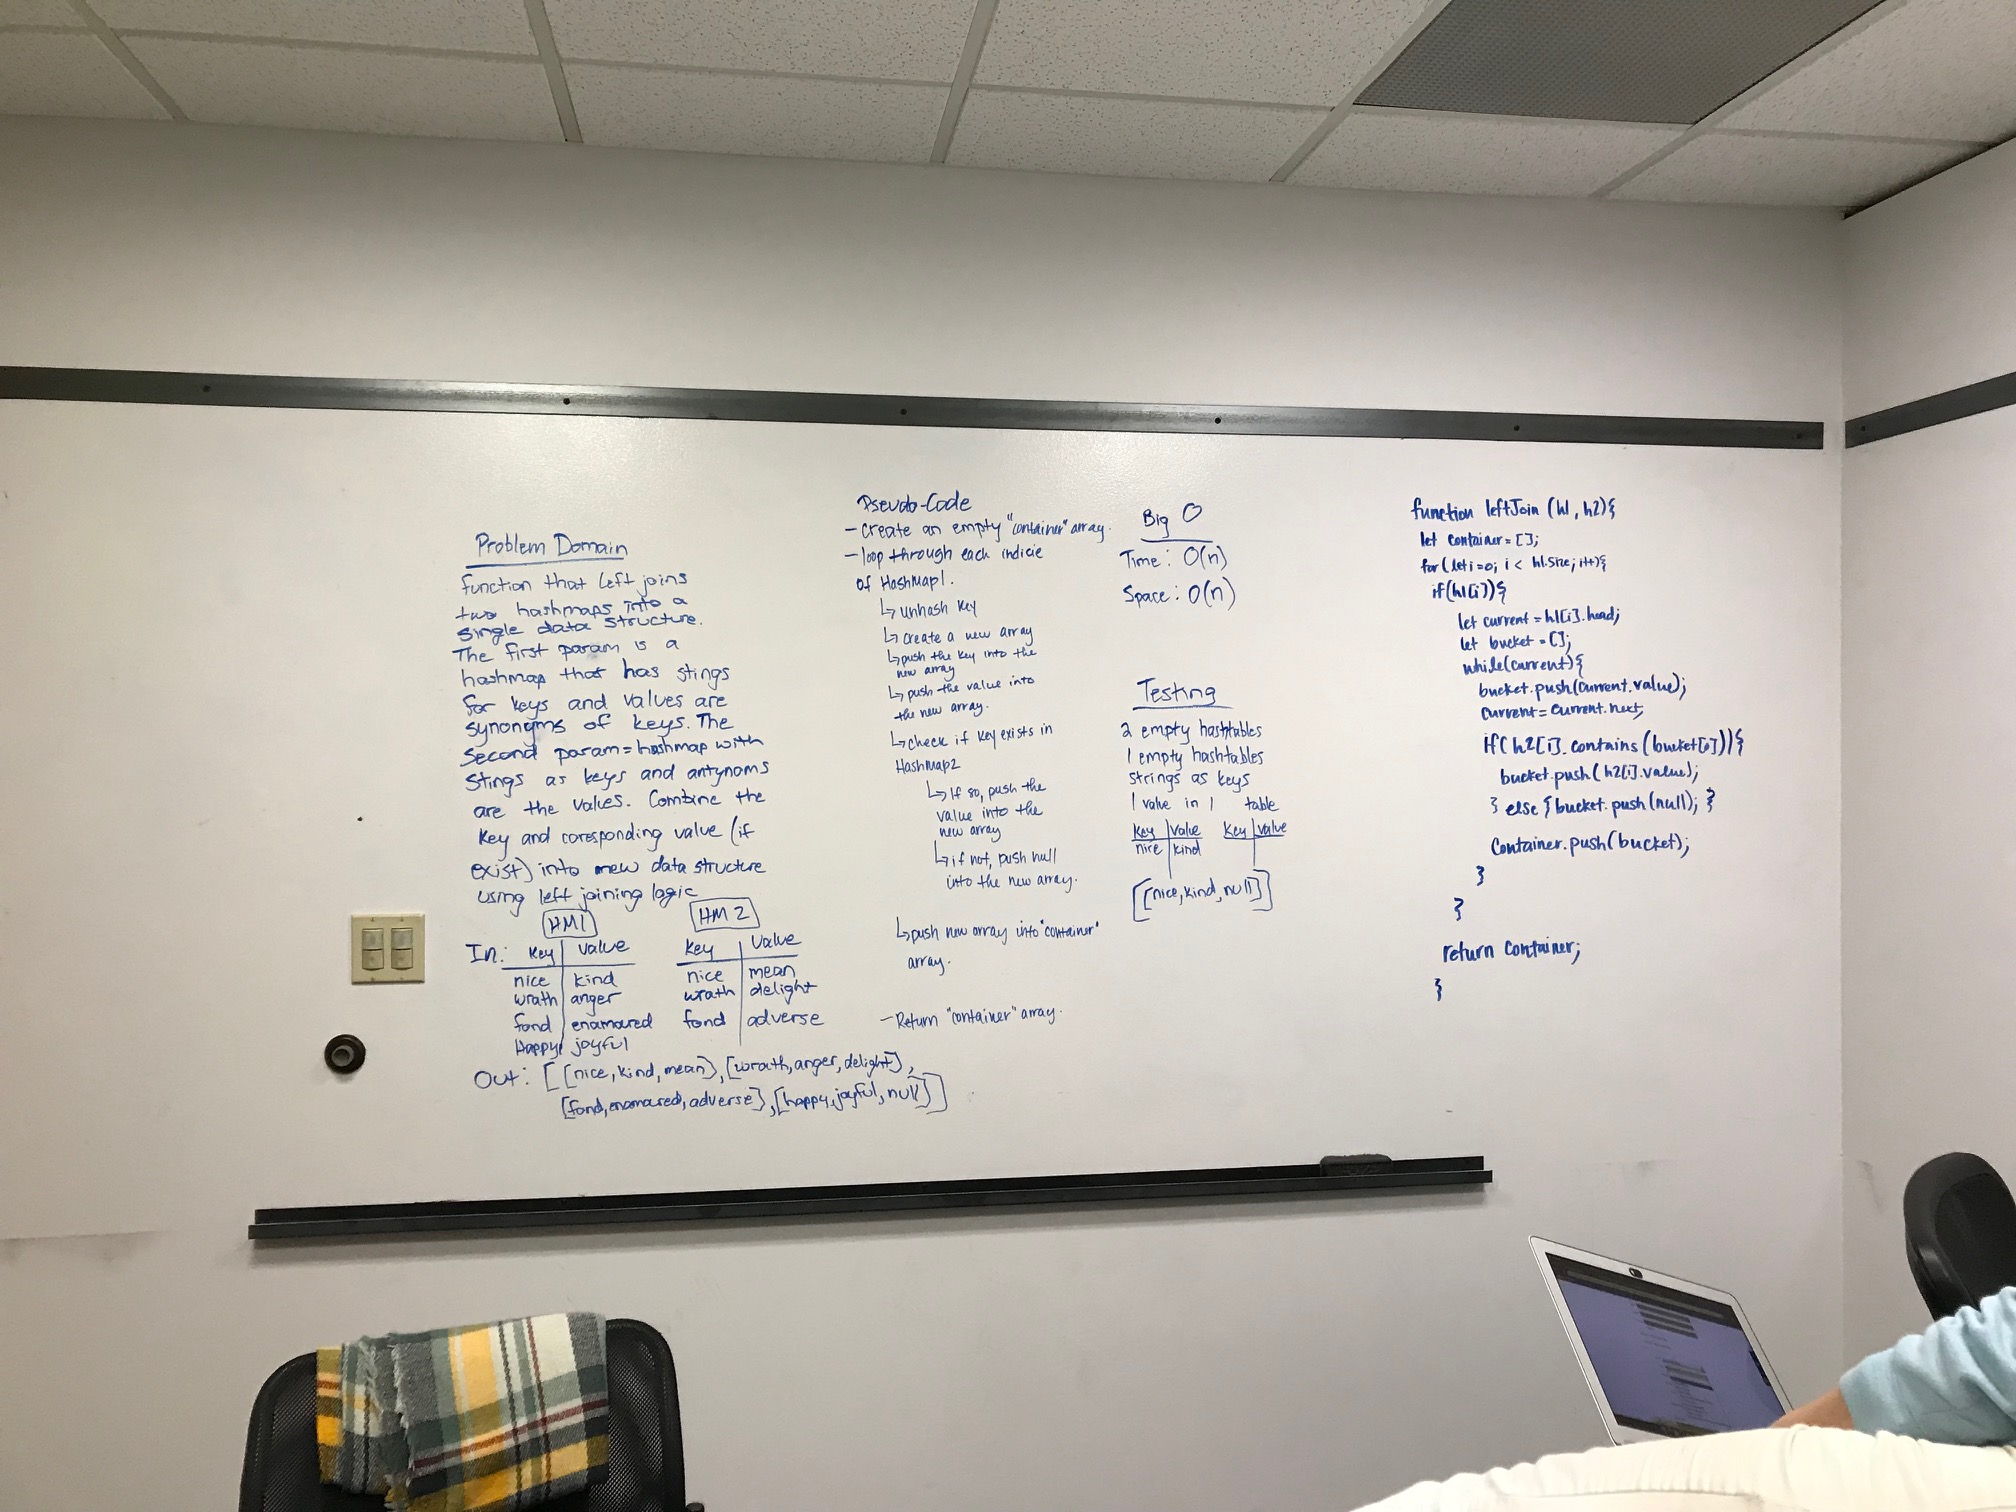 Problem Domain
function that left joins
two hashmaps into a
single data structure.
The first param is a
hashmap that has stings
for keys and values are
synonyms of keys. The
Second param = hashmap with
stings as keys and antynoms
are the values. Combine the
key and coresponding value (if
exist) into new data structure
using left joining logic
HM1 HM2
In: Key Value Key Value
nice kind nice mean
wrath anger wrath delight
fond enamoured fond adverse
Happy joyful
Out: [[nice, kind, mean], [wrath, anger, delight],
[fond, enamoured, adverse], [happy, joyful, null]]
Pseudo-Code
- create an empty "container" array.
- loop through each indicie
of HashMap1.
↳ unhash key
↳ create a new array
↳ push the key into the
new array
↳ push the value into
the new array.
↳ check if key exists in
HashMap2
↳ If so, push the
value into the
new array
↳ if not, push null
into the new array.
↳ push new array into "container"
array.
- Return "container" array.
Big O
Time: O(n)
Space: O(n)
Testing
2 empty hashtables
1 empty hashtables
strings as keys
1 value in 1 table
Key Value Key Value
nice kind
[[nice, kind, null]]
function leftJoin (h1, h2){
let container = [];
for (let i=0; i < h1.size; i++){
if(h1[i]){
let current = h1[i].head;
let bucket = [];
while(current){
bucket.push(current.value);
current = current.next;
if(h2[i].contains(bucket[0])){
bucket.push(h2[i].value);
} else {bucket.push(null); }
Container.push(bucket);
}
}
return container;
}